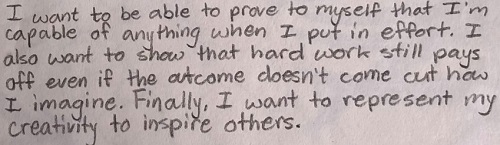 I want to be able to prove to myself that I'm
capable of anything when I put in effort. I
also want to show that hard work still pays
off even if the outcome doesn't come out how
I imagine. Finally, I want to represent my
creativity to inspire others.